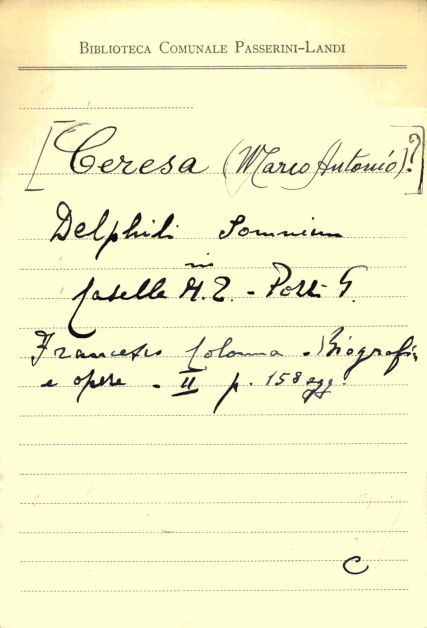 BIBLIOTECA COMUNALE PASSERINI-LANDI
[Ceresa (Marco Antonio)?]
Delphili Somnium
in
Casella M. T. - Pozzi G.
Francesco Colonna. Biografia
e opere - II p. 158 sgg.
C